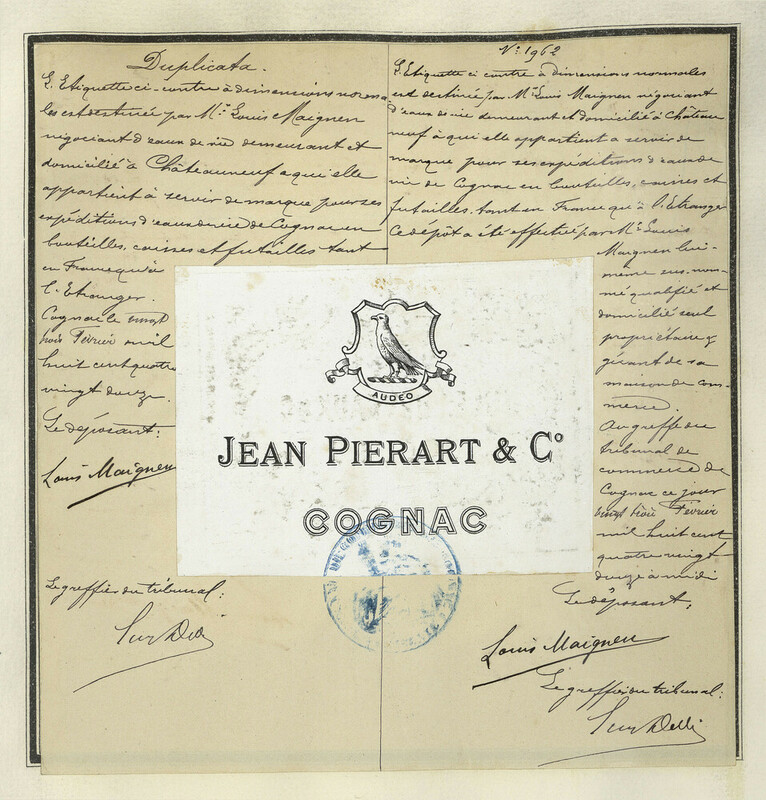 Duplicata.
L'Etiquette ci-contre à dimensions norma
les est destinée par Mr. Louis Maignen
négociant d'eaux de vie demeurant et
domicilié à Châteauneuf a qui elle
appartient à servir de marque pour ses
expéditions d'eaux de vie de Cognac en
bouteilles, caisses et futailles tant
en France qu'à
l'Etranger.
Cognac le vingt
trois Février mil
huit cent quatre
vingt douze.
Le déposant:
Louis Maignen
Le greffier du tribunal:
No. 1962
L'Etiquette ci contre à dimensions normales
est destinée par Mr. Louis Maignen négociant
d'eaux de vie demeurant et domicilié à Château
neuf à qui elle appartient a servir de
marque pour ses expéditions d'eaux de
vie de Cognac en bouteilles, caisses et
futailles, tant en France que à l'Etranger
Ce dépôt a été effectué par Mr. Louis
Maignen lui-
même sus-nom-
mé qualifié et
domicilié seul
propriétaire &
gérant de sa
maison de com-
merce
Au greffe du
tribunal de
commerce de
Cognac ce jour
vingt trois Février
mil huit cent
quatre vingt
douze à midi
Le déposant:
Louis Maignen
Le greffier du tribunal:
AUDEO
JEAN PIERART & Co
COGNAC